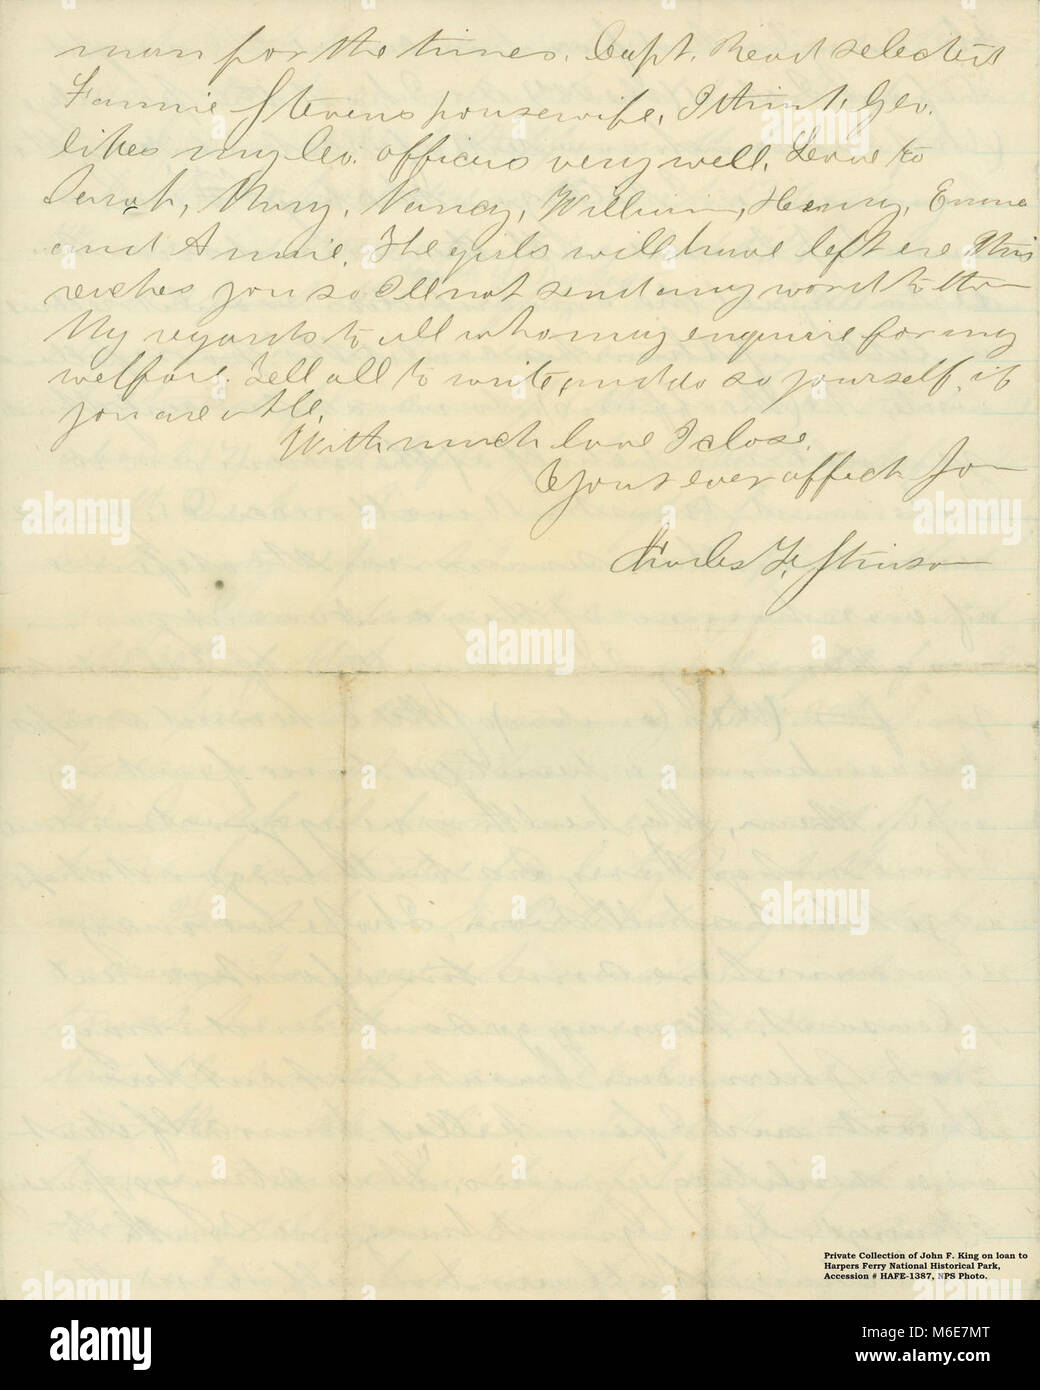 man for the times. Capt. Read selected
Fannie Stevens housewife, I think, Geo.
likes my Co. officers very well. Love to
Sarah, Mary, Nancy, William, Henry, Emma
and Annie. The girls will have left ere this
reaches you so I'll not send any word to them
My regards to all who may enquire for my
welfare. Tell all to write, and do so yourself, if
you are able.
With much love I close.
Yours ever affect. Son
Charles F. Stinson
Private Collection of John F. King on loan to
Harpers Ferry National Historical Park,
Accession # HAFE-1387, NPS Photo.
alamy
alamy
alamy
alamy
alamy
alamy
alamy
alamy
M6E7MT
www.alamy.com